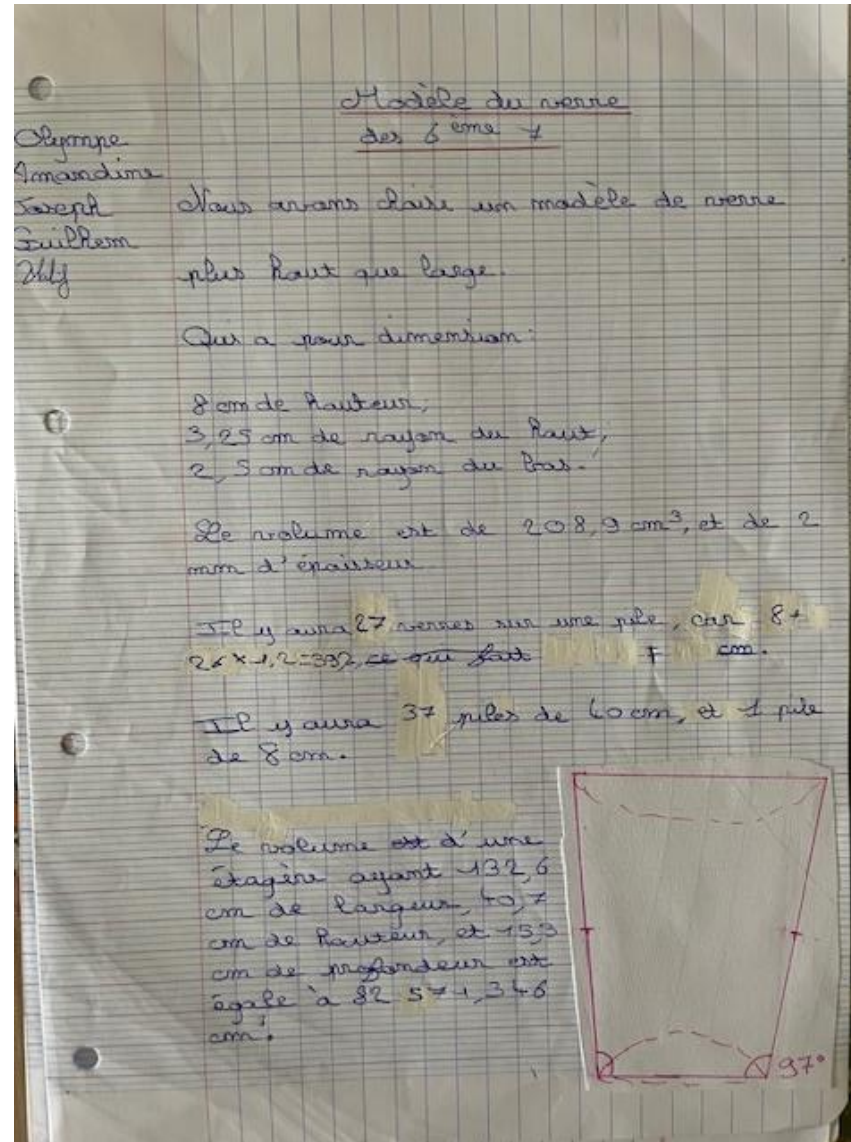 Modèle du verre
des 6 ème 7
Olympe
Amandine
Joseph
Guilhem
Nous avons choisi un modèle de verre
plus haut que large.
Qui a pour dimension :
8 cm de hauteur,
3,25 cm de rayon du haut,
2,5 cm de rayon du bas.
Le volume est de 208,9 cm³, et de 2
mm d'épaisseur
Il y aura 27 verres sur une pile, car 8+
26 x 1,2=392, ce qui fait cm.
Il y aura 37 piles de 40 cm, et 1 pile
de 8 cm.
Le volume est d'une
étagère ayant 132,6
cm de largeur, 40,7
cm de hauteur, et 15,3
cm de profondeur est
égale à 82 571,346
cm³.
97°